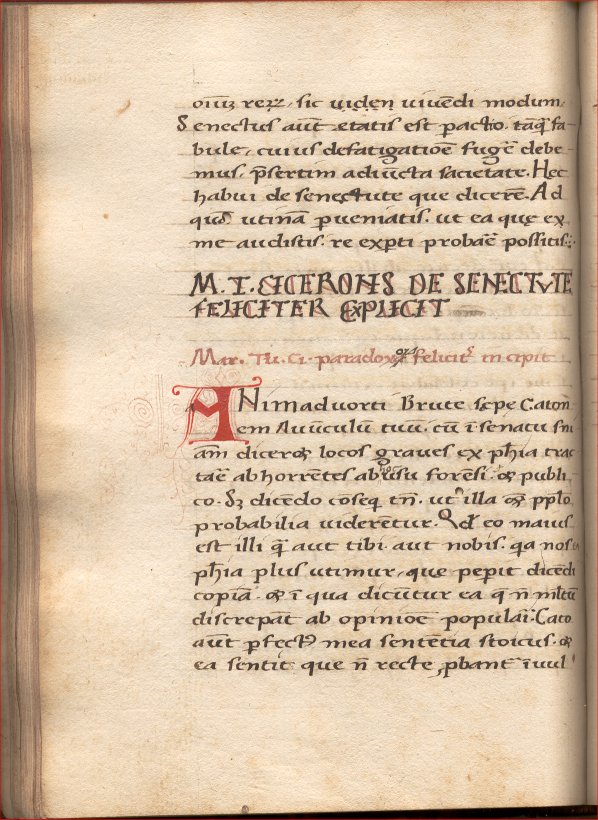 oīuȝ reꝝ, sic uiden uiuēdi modum,
Senectus aūt etatis est pactio. taq̄ fa
bule, cuius defatigationē fugē debe
mus, p̄sertim adiūcta sacietate. Hec
habui de senectute que dicerē. Ad
quā utinā pueniatis. ut ea quę ex
me audistis. re expti probaē possitis:.
M. T. CICERONIS DE SENECTVTE
FELICITER EXPLICIT
Mar. Tu. Ci. paradoxoꝝ felicit͛ incipit
ANimaduorti Brute sępe Caton
em Auūculū tuū. cū ī senatu sn̄i
am̄ diceret locos graues ex ph̄ia trac
taē abhorrētes ab hoc usu forēsi. et publi
co. Sȝ dicēdo cōseq̄ tn̄. ut illa et pp̄lo
probabilia uiderētur. Qd̄ eo maius
est illi q̄ aut tibi. aut nobis. qa nos
ph̄ia plus utimur, que pepit dicēdi
copiā. et ī qua dicūtur ea q̄ n̄ ml̄tū
discrepāt ab opinioē populaī. Cato
aūt pfect᷒ mea sentētia stoicus. et
ea sentit que n̄ recte ꝓbant ī uul